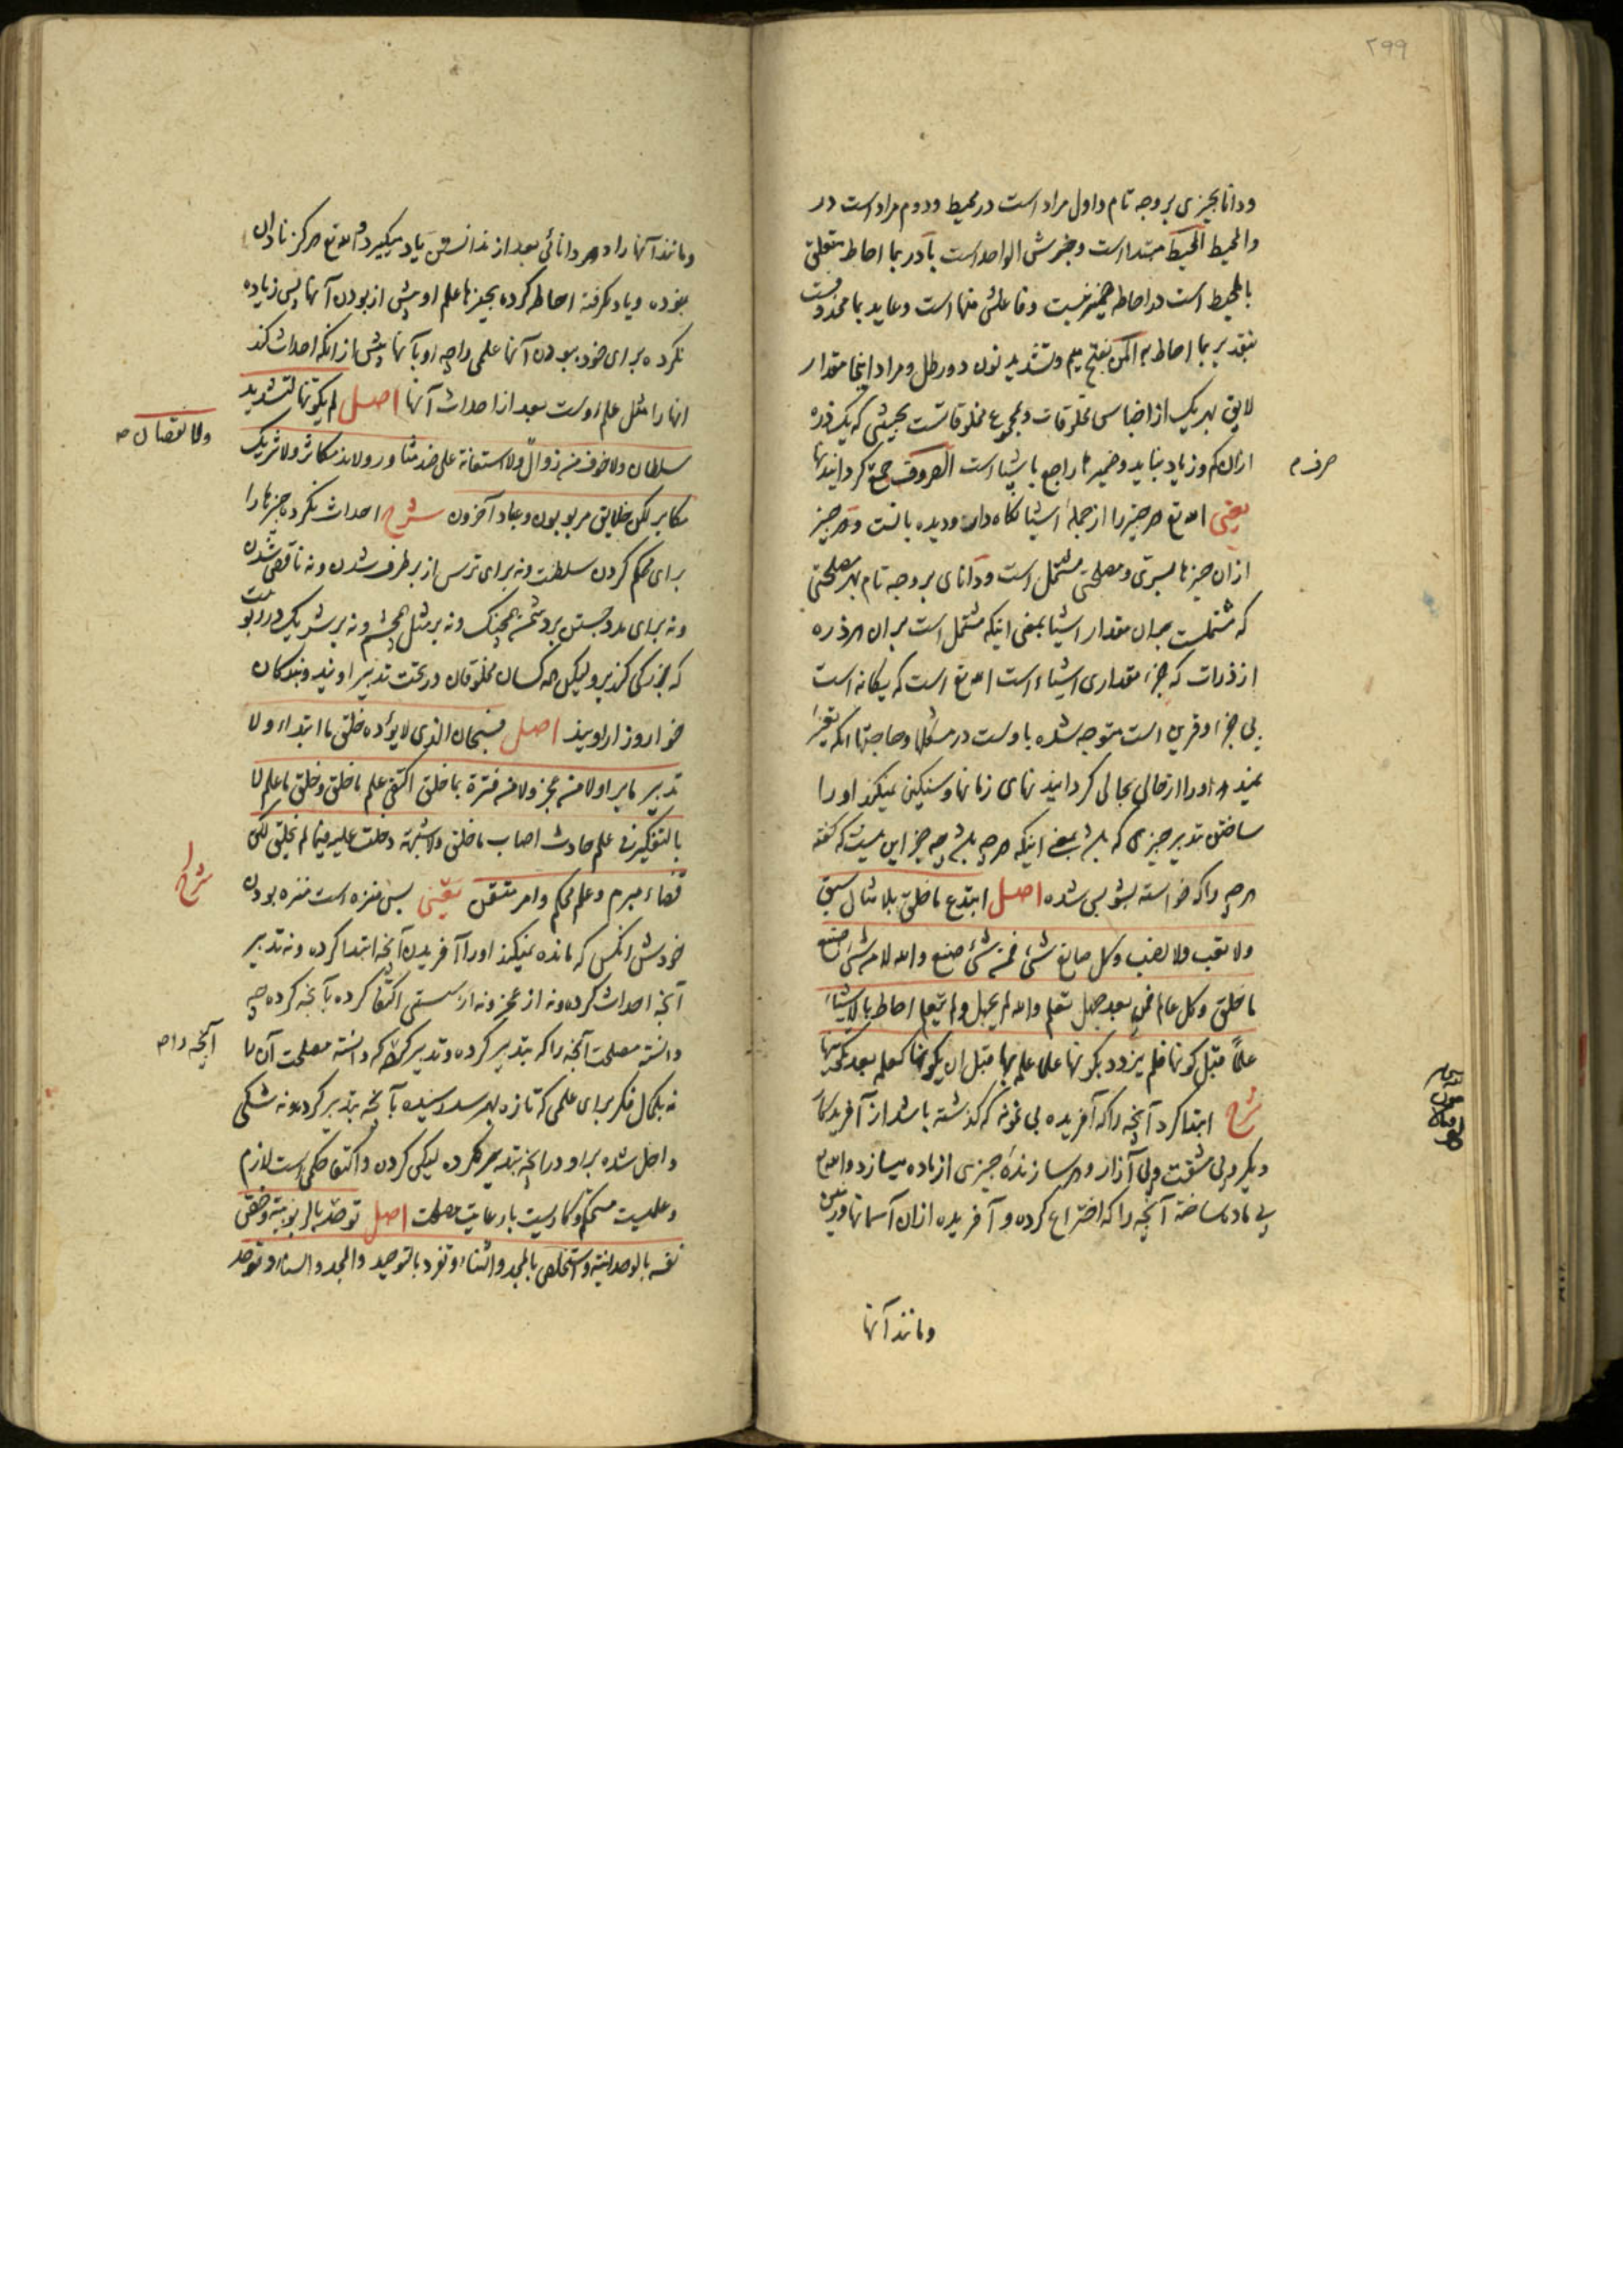 ۲۹۹
ودانا بچیزی بر وجه تام و اول مراد است در محیط و دوم مراد است در
والمحیط المحیط مبتدا است و خبرش الواحد است با در بما احاط متعلق
بالمحیط است و احاط ضمیر نیست و فاعلش منها است و عاید بما محذوفست
بتقدیر بما احاط به المن بفتح میم و تشدید نون دو رطل و مراد اینجا مقدار
لایق بهر یک از اجناس مخلوقات و مجموع مخلوقاتست بحیثیتی که یک ذره
ازان کم و زیاد نباید و ضمیر ها راجع باشیا است الصروف جمع گردانیدنها
صرف م
یعنی الله تع هر چیز را از جمله اشیا نگاه دارنده و دیده بانست و هر چیز
ازان چیزها بسری و مصلحتی مشتمل است و دانای بر وجه تام بهر مصلحتی
که مشتملست بران مقدار اشیا بمعنی اینکه مشتمل است بران هر ذره
از ذرات که جزء مقداری اشیاء است الله تع است که یگانه است
بی جزء و قرین است متوجه شده باوست در مشکلها و حاجتها آنکه تغیر
نمیدهد او را از حالی بحالی گردانیدنهای زمانها و سنگین نمیکند او را
ساختن تدبیر چیزی که باشد بمعنی اینکه هر چه باشد چه جز این نیست که گفته
هر چه را که خواسته بشو پس شده اصل ابتدع ما خلق بلا مثال سبق
ولا تعب ولا نصب وکل صانع شئ فمن شئ صنع والله لا من شئ صنع
ما خلق وکل عالم فمن بعد جهل تعلم والله لم یجهل ولم یتعلم احاط بالاشیاء
علماً قبل کونها فلم یزدد بکونها علما علمه بها قبل ان یکونها کعلمه بعد تکوینها
شرح ابتدا کرد آنچه را که آفریده بی نمونه که گذشته باشد از آفریدگار
دیگر و بی مشقت و بی آزار و هر سازنده چیزی از ماده میسازد و الله تع
بی ماده ساخته آنچه را که اختراع کرده و آفریده ازان آسمانها و زمین
ومانند آنها
ومانند آنها را و هر دانائی بعد از ندانستن یاد میگیرد و الله تع هرگز نادان
نبوده و یاد نگرفته احاطه کرده بچیزها علم او پیش از بودن آنها پس زیاده
نکرده برای خود ببودن آنها علمی را چه او بآنها پیش از انکه احداث کند
انها را مثل علم اوست بعد از احداث آنها اصل لم یکونها لتشدید
سلطان ولا خوف من زوال ولا استعانة علی ضد مثاور ولا ند مکاثر ولا شریک
ولا نقصان صح
مکابر لکن خلایق مربوبون و عباد آخرون شرح احداث نکرده چیزها را
برای محکم کردن سلطنت و نه برای ترس از برطرف شدن و نه ناقص شدن
و نه برای مدد جستن بر دشمن همجنگ و نه بر مثل همچشم و نه بر شریک در ربوبیت
که بزرگی کند برو لیکن همه کسان مخلوقان در تحت تدبیر اویند و بندگان
خوار و زار اویند اصل فسبحان الذی لا یؤده خلق ما ابتداء ولا
تدبیر ما برا ولا من عجز ولا من فترة بما خلق اکتفی علم ما خلق وخلق ما علم لا
بالتفکیر فی علم حادث اصاب ما خلق ولا شبهة دخلت علیه فیما لم یخلق لکن
قضاء مبرم وعلم محکم وامر متقن یعنی پس منزه است منزه بودن
شرح
خودش آنکس که مانده نمیکند او را آفریدن آنچه ابتدا کرده و نه تدبیر
آنچه احداث کرده و نه از عجز و نه از سستی اکتفا کرده بآنچه کرده چه
دانسته مصلحت آنچه را که بتدبیر کرده و تدبیر کرده که دانسته مصلحت آن را
آنچه را صح
نه بکمال فکر برای علمی که تازه بهم رسد رسیده بآنچه بتدبیر کرده و نه شکی
داخل شده بر او در آنچه بتدبیر نکرده لیکن کردن و اکتفا حکمی است لازم
و علمیست محکم و کاریست با رعایت مصلحت اصل توحد بالربوبیة وخص
نفسه بالوحدانیة واستخلص بالمجد والثناء وتفرد بالتوحید والمجد والسناء وتوحد